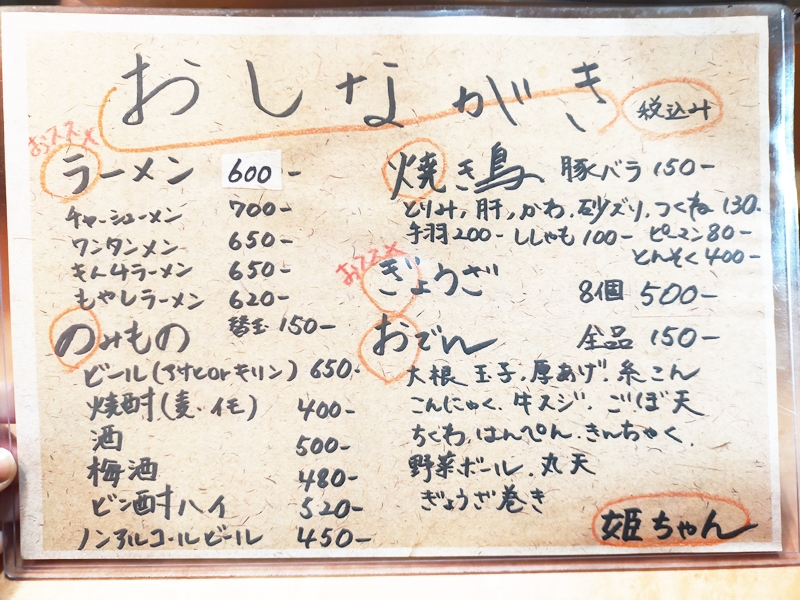 おしながき 税込み
おススメ
ラーメン 600-
チャーシューメン 700-
ワンタンメン 650-
キムチラーメン 650-
もやしラーメン 620-
替玉 150-
のみもの
ビール(アサヒorキリン) 650-
焼酎(麦・イモ) 400-
酒 500-
梅酒 480-
ビン酎ハイ 520-
ノンアルコールビール 450-
焼き鳥 豚バラ 150-
とりみ, 肝, かわ, 砂ズリ, つくね 130-
手羽 200- ししゃも 100- ピーマン 80-
とんそく 400-
おススメ
ぎょうざ 8個 500-
おでん 全品 150-
大根. 玉子. 厚あげ. 糸こん
こんにゃく. 牛スジ. ごぼ天
ちくわ. はんぺん. きんちゃく.
野菜ボール. 丸天
ぎょうざ巻き
姫ちゃん